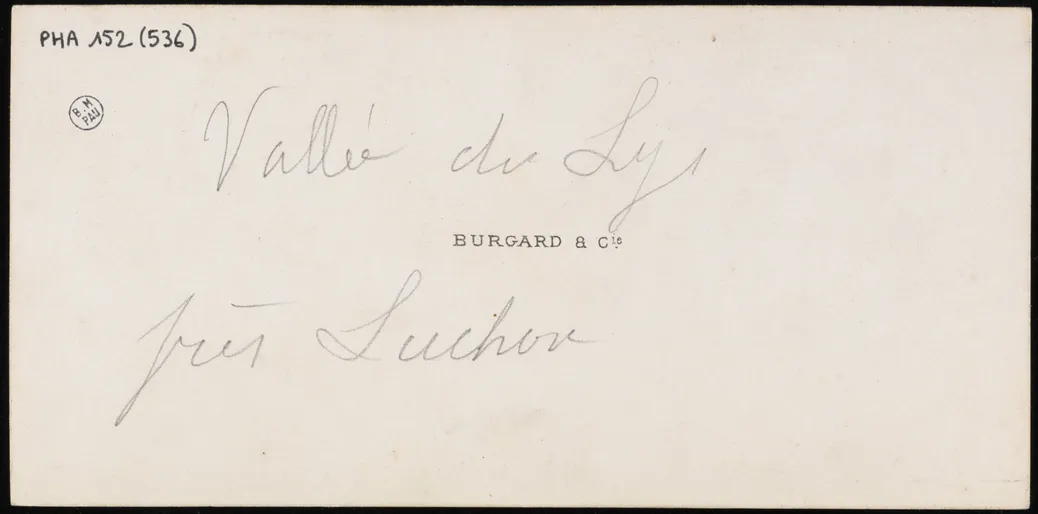 PHA 152 (536)
B.M
PAU
Vallée du Lys
BURGARD & Cie
près Luchon